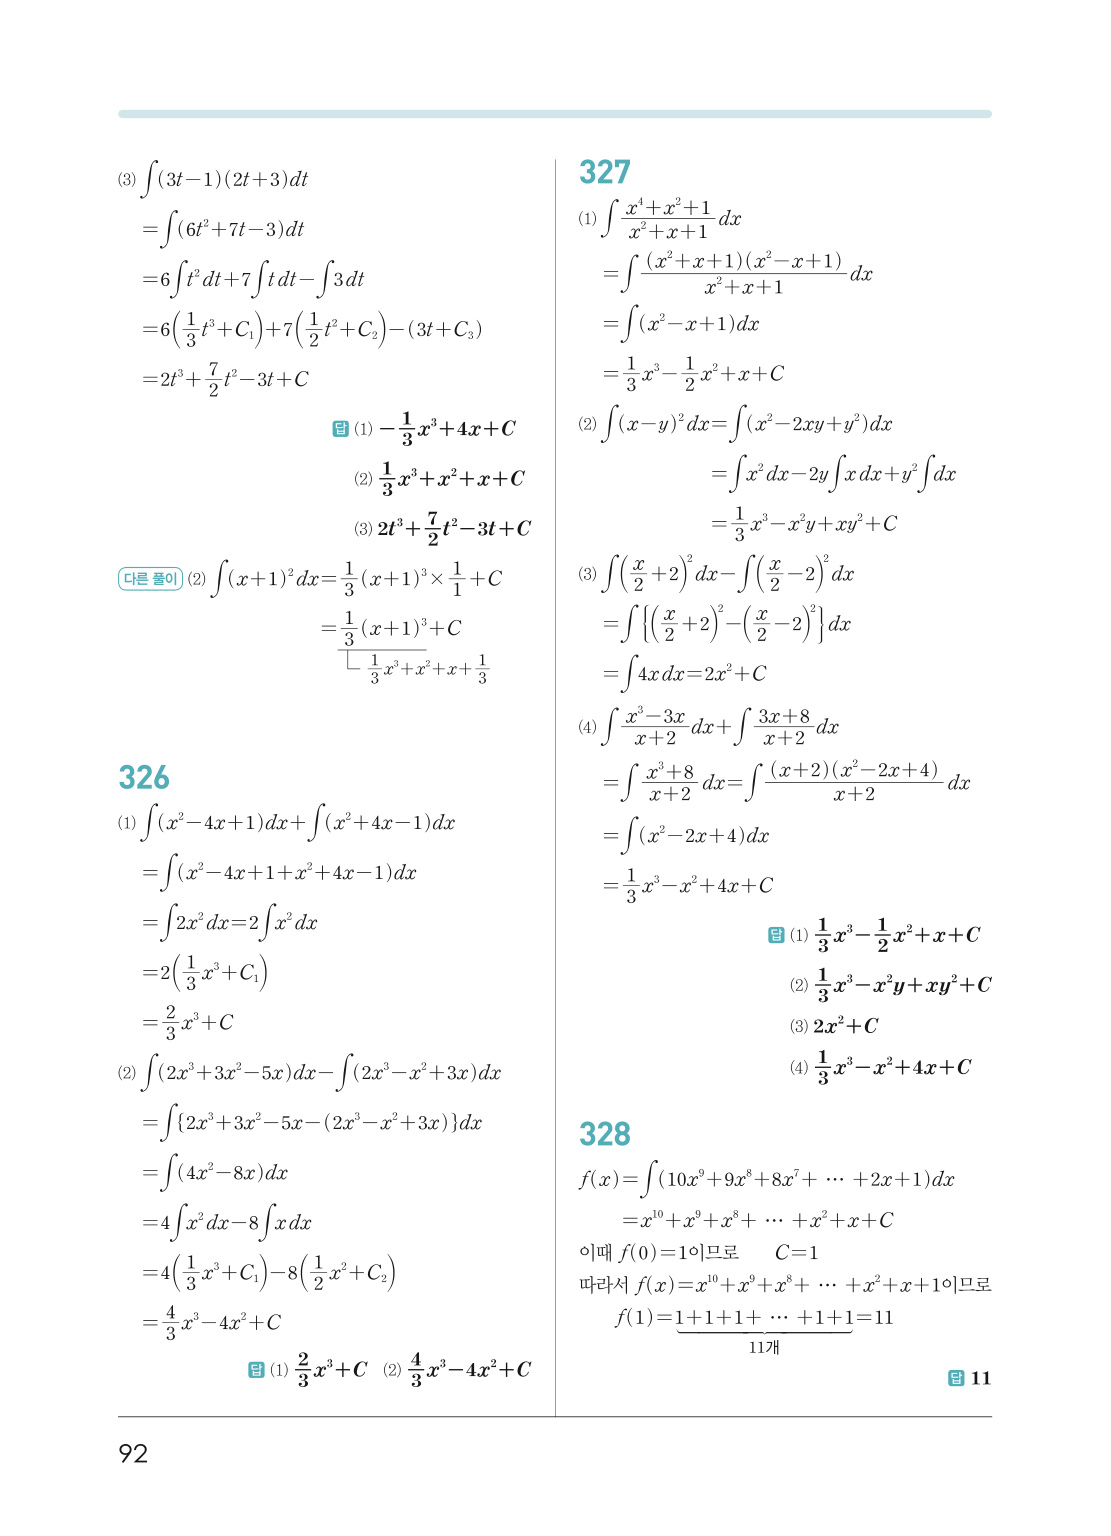 (3) ∫(3t−1)(2t+3)dt
=∫(6t²+7t−3)dt
=6∫t²dt+7∫t dt−∫3dt
=6(1/3 t³+C₁)+7(1/2 t²+C₂)−(3t+C₃)
=2t³+7/2 t²−3t+C
답 (1) −1/3 x³+4x+C
(2) 1/3 x³+x²+x+C
(3) 2t³+7/2 t²−3t+C
다른 풀이 (2) ∫(x+1)²dx=1/3 (x+1)³×1/1+C
=1/3 (x+1)³+C
1/3 x³+x²+x+1/3
326
(1) ∫(x²−4x+1)dx+∫(x²+4x−1)dx
=∫(x²−4x+1+x²+4x−1)dx
=∫2x²dx=2∫x²dx
=2(1/3 x³+C₁)
=2/3 x³+C
(2) ∫(2x³+3x²−5x)dx−∫(2x³−x²+3x)dx
=∫{2x³+3x²−5x−(2x³−x²+3x)}dx
=∫(4x²−8x)dx
=4∫x²dx−8∫x dx
=4(1/3 x³+C₁)−8(1/2 x²+C₂)
=4/3 x³−4x²+C
답 (1) 2/3 x³+C (2) 4/3 x³−4x²+C
327
(1) ∫(x⁴+x²+1)/(x²+x+1) dx
=∫(x²+x+1)(x²−x+1)/(x²+x+1) dx
=∫(x²−x+1)dx
=1/3 x³−1/2 x²+x+C
(2) ∫(x−y)²dx=∫(x²−2xy+y²)dx
=∫x²dx−2y∫x dx+y²∫dx
=1/3 x³−x²y+xy²+C
(3) ∫(x/2+2)²dx−∫(x/2−2)²dx
=∫{(x/2+2)²−(x/2−2)²}dx
=∫4x dx=2x²+C
(4) ∫(x³−3x)/(x+2) dx+∫(3x+8)/(x+2) dx
=∫(x³+8)/(x+2) dx=∫(x+2)(x²−2x+4)/(x+2) dx
=∫(x²−2x+4)dx
=1/3 x³−x²+4x+C
답 (1) 1/3 x³−1/2 x²+x+C
(2) 1/3 x³−x²y+xy²+C
(3) 2x²+C
(4) 1/3 x³−x²+4x+C
328
f(x)=∫(10x⁹+9x⁸+8x⁷+ ⋯ +2x+1)dx
=x¹⁰+x⁹+x⁸+ ⋯ +x²+x+C
이때 f(0)=1이므로 C=1
따라서 f(x)=x¹⁰+x⁹+x⁸+ ⋯ +x²+x+1이므로
f(1)=1+1+1+ ⋯ +1+1=11
11개
답 11
92